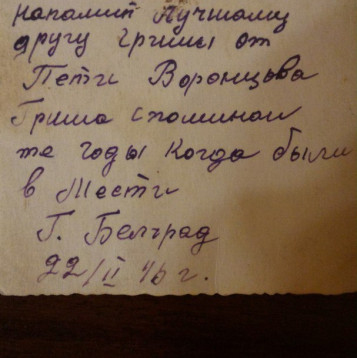 напамит Лучшому
другу Гриши от
Пети Воронцова
Гриша спominай
те годы когда были
в Мести
Г. Белград
22/II 46 г.